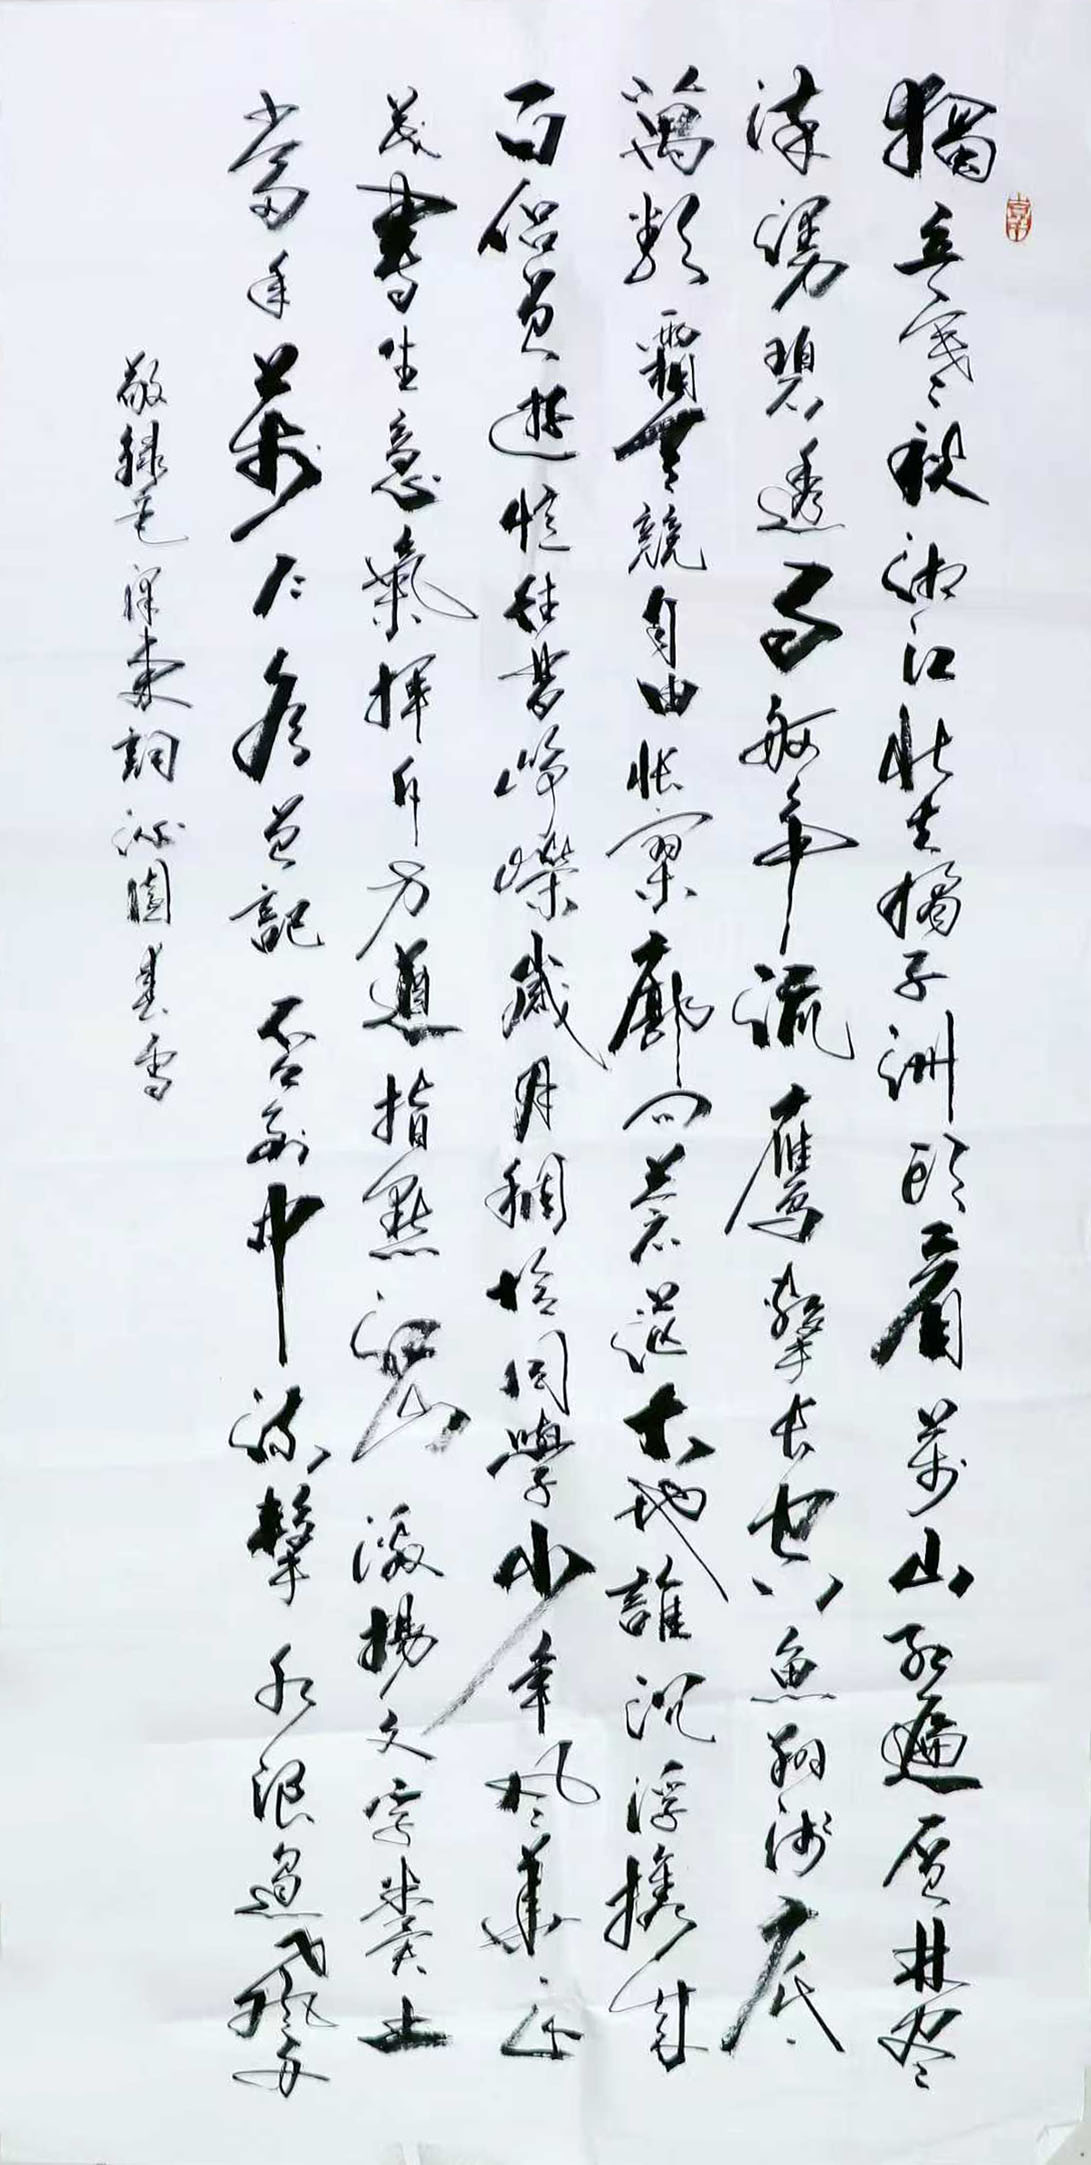 獨立寒秋湘江北去橘子洲頭看萬山紅遍層林盡
染漫碧透百舸爭流鷹擊長空魚翔淺底
萬類霜天競自由悵寥廓問蒼茫大地誰沉浮攜來
百侶曾遊憶往昔崢嶸歲月稠恰同學少年風華正
茂書生意氣揮斥方遒指點江山激揚文字糞土
當年萬户侯曾記否到中流擊水浪遏飛舟
敬録毛澤東詞沁園春雪